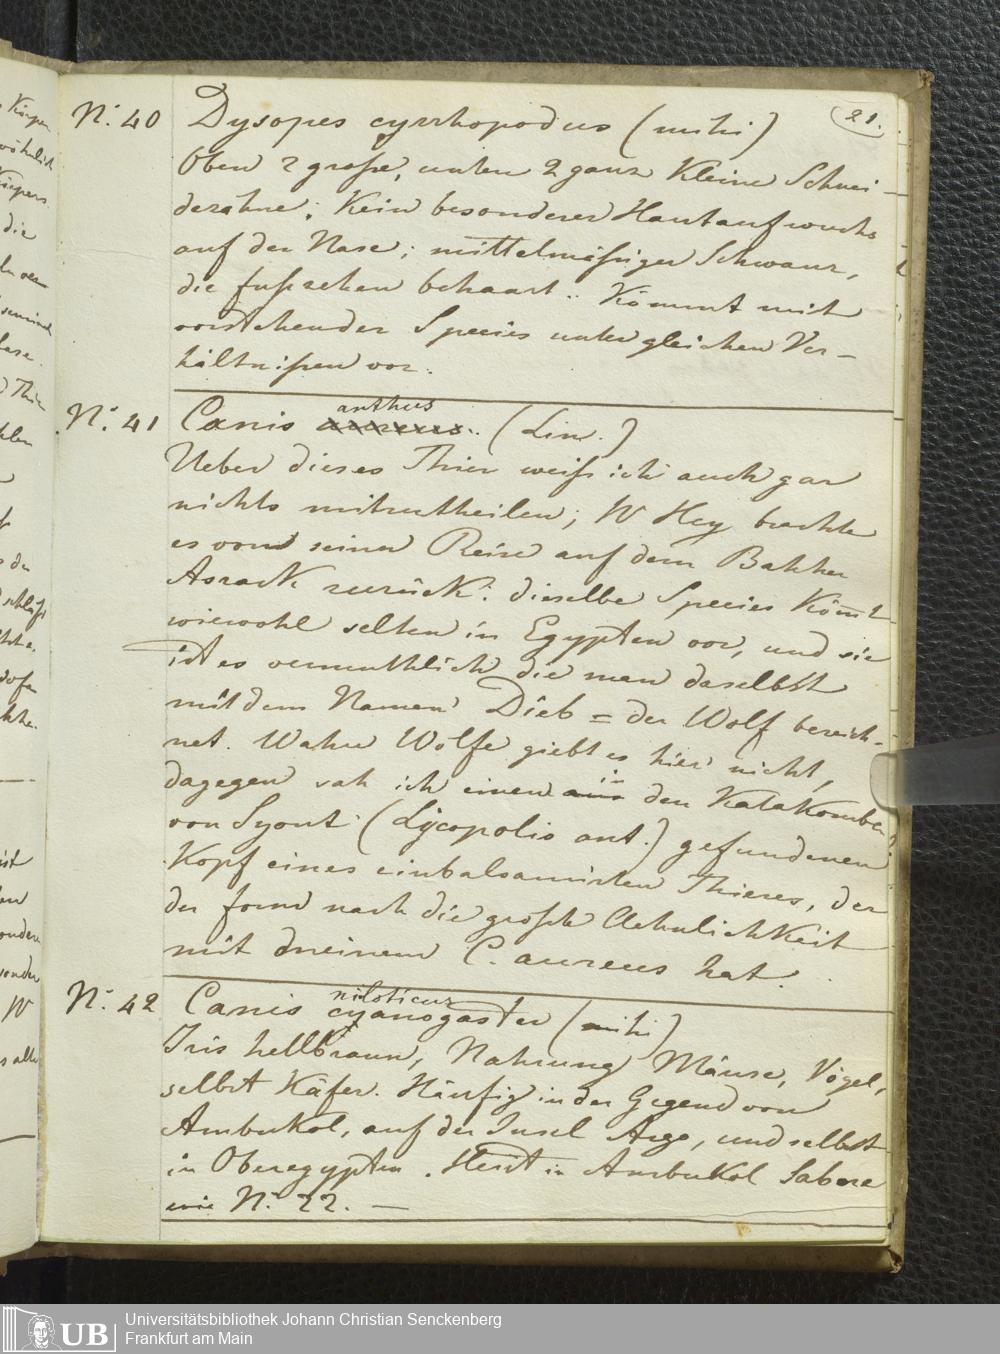 21.
N.° 40 Dysopes cyrrhopodus (mihi)
Oben 2 große, unten 2 ganz kleine Schnei-
dezähne; kein besonderer Hautaufwuchs
auf der Nase; mittelmäßiger Schwanz,
die fußzehen behaart.. Kömmt mit
vorstehender Species unter gleichen Ver-
hältnißen vor.
N.° 41 Canis anthus (Lin.)
Ueber dieses Thier weiß ich auch gar
nichts mitzutheilen; W Hey brachte
es von seiner Reise auf dem Bahher
Asrack zurück. dieselbe Species kömt
wiewohl selten in Egypten vor, und sie
ist es vermuthlich die man daselbst
mit dem Namen Dieb = der Wolf bezeich-
net. Wahre Wölfe giebt es hier nicht,
dagegen sah ich einen in den Katakomben
von Syout (Lycopolis ant.) gefundenen
Kopf eines einbalsamirten Thieres, der
der form nach die große Aehnlichkeit
mit meinem C. aureus hat.
N.° 42 Canis niloticus cyanogaster (mihi)
Iris hellbraun, Nahrung Mäuse, Vögel,
selbst Käfer. Häufig in der Gegend von
Ambukol, auf der Insel Argo, und selbst
in Oberegypten. Heist in Ambukol Sabora
wie N.° 22. —
UB
Universitätsbibliothek Johann Christian Senckenberg
Frankfurt am Main